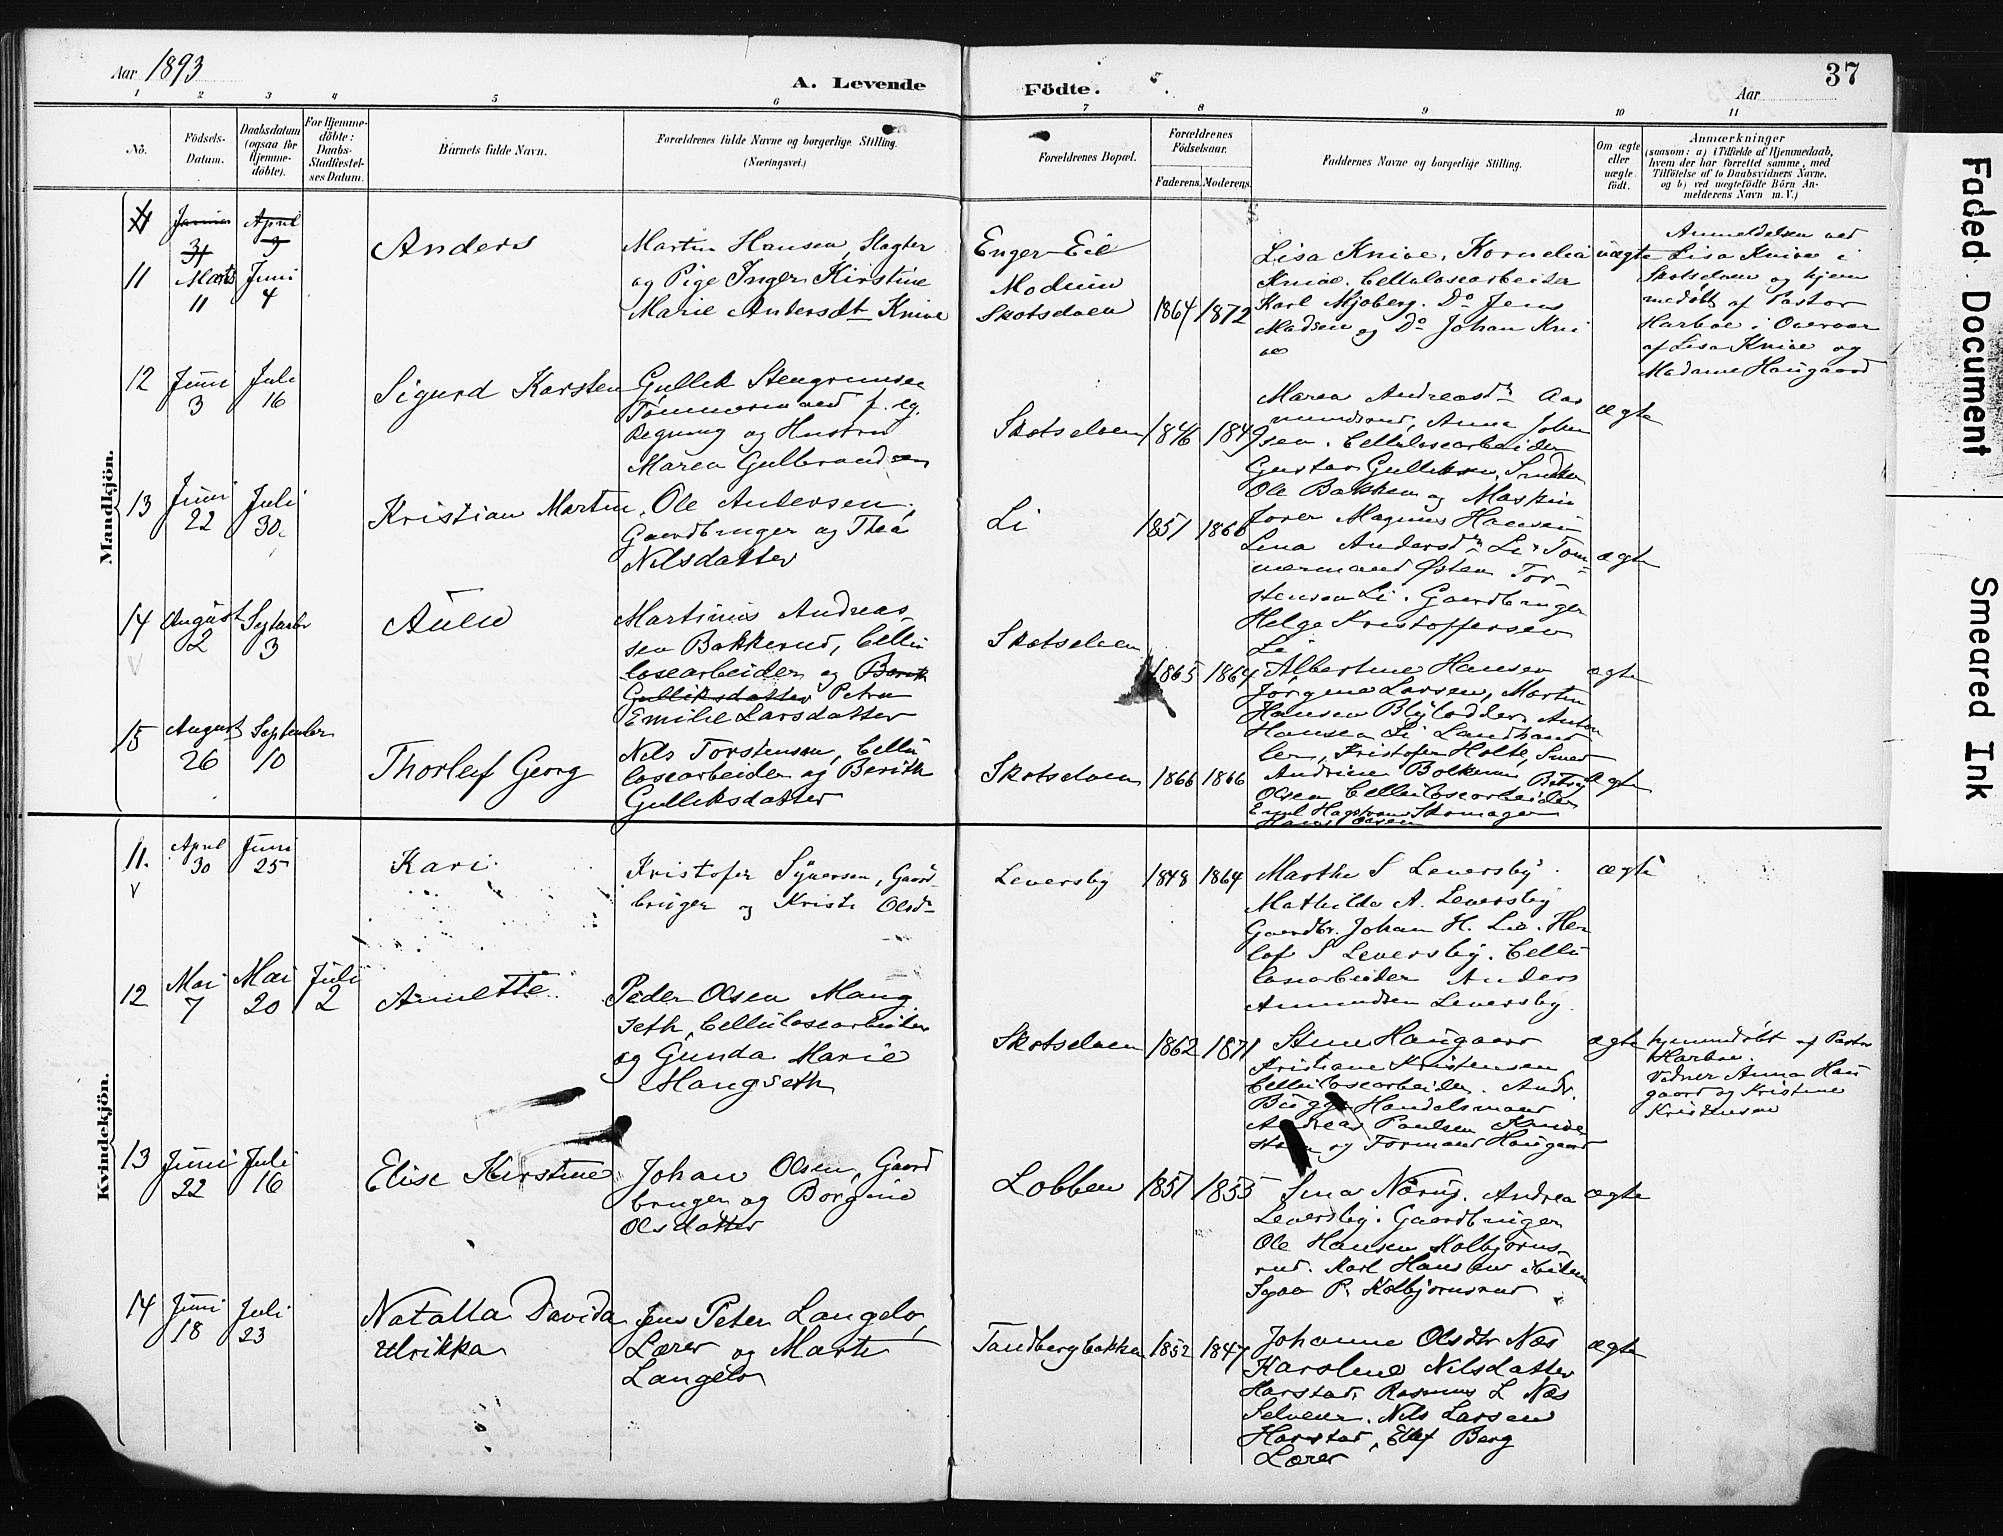 Aar 1893
A. Levende Födte.
Aar
37
1 2 3 4 5 6 7 8 9 10 11
No.
Födsels-Datum.
Daabsdatum (ogsaa for Hjemme-döbte).
For Hjemme-döbte: Daabs-Stadfæstel-ses Datum.
Barnets fulde Navn.
Forældrenes fulde Navne og borgerlige Stilling.
(Næringsvei.)
Forældrenes Bopæl.
Forældrenes Födselsaar.
Faderens. Moderens.
Faddernes Navne og borgerlige Stilling.
Om ægte eller uægte födt.
Anmærkninger
(saasom: a) i Tilfælde af Hjemmedaab,
hvem der har forrettet samme, med
Tilföielse af to Daabsvidners Navne.
og b) ved uægtefödte Börn An-
melderens Navn m. V.)
Mandkjön.
11 Marts 11 Juni 4
Anders
Martin Hansen, Slagter
og Pige Inger Kirstine
Marie Andersdt Knive
Enger Eie
Modum
Skotselven
1864 1872
Lisa Knive, Kornelia
Knive. Cellulosearbeider
Karl Mjøberg. Do Jens
Madsen og Do Johan Kni
ve
uægte
Anmeldelsen ved
Lisa Knive i
Skotselven og hjem
medøbt af Pastor
Harboe i Overvær
af Lisa Knive og
Madame Haugaard
12 Juni 3 Juli 16
Sigurd Karsten
Gullik Stengrimsen
Tømmermand f. eg.
Regning og Hustru
Maren Gulbrandsen
Skotselven 1846 1849
Maren Andreasdtr Aas
mundrud, Anne Johan
sen. Cellulosearbeider
Gustav Gulliksen, Snedker
Ole Bakken og Maskin
fører Magnus Hansen
ægte
13 Juni 22 Juli 30.
Kristian Martin
Ole Andersen,
Gaardbruger og Thea
Nilsdatter
Li 1851 1866
Lina Andersdtr Li Tøm
mermand Østen Tor-
stensen Li. Gaardbruger
Helge Kristoffersen
Li
ægte
14 August 2 Septembr 3
Martinus Andreas
sen Bakkerud, Cellu
losearbeider og Berith
Gulliksdatter Petra
Emilie Larsdatter
Skotselven
1865 1864
Albertine Hansen
Jørgine Larsen, Martin
Hansen Blylodder, Anton
Hansen Li Landhand
ler, Kristofer Holte, Smed
ægte
15 August 26 September 10
Thorleif Georg
Nils Torstensen, Cellu
losearbeider og Berith
Gulliksdatter
Skotselven 1866 1866
Andrine Bolkesen Betsy
Olsen Cellulosearbeider
Emil Hagstrøm Skomager
Hans Olsen
ægte
Kvindekjön.
11. April 30 Juni 25
Kari
Kristofer Syversen, Gaard-
bruger og Kristi Olsdr
Leversby 1848 1864
Marthe S Leversby.
Mathilde A. Leversby
Gaardbr. Johan H. Lie. Her
lof S Leversby. Cellu
losearbeider Anders
Amundsen Leversby.
ægte
12 Mai 7 Mai 20 Juli 2
Anette
Peder Olsen Maug
seth, Cellulosearbeider
og Gunda Marie
Haugseth
Skotselven 1862 1871
Stine Haugaard
Kristiane Kristensen
Cellulosearbeider. Andr.
Bugge Handelsmand
Andreas Paulsen Knive
og Formand Haugaard
ægte
hjemmedøbt af Pastor
Harboe.
Vidner Anna Hau
gaard og Kristine
Kristensen
13 Juni 22 Juli 16
Elise Kirstine
Johan Olsen, Gaard
bruger og Borgine
Olsdatter
Lobben 1851 1855
Lina Nærup. Andrea
Leversby. Gaardbruger
Ole Hansen Kolbjørns-
rud. Karl Hansen ibidem
P. Kolbjørnsrud
ægte
14 Juni 18 Juli 23
Natalia Davida
Ulrikka
Jens Peter Langelo,
Lærer og Marte
Langelo
Tandbergbakken 1852 1847
Johanne Olsdtr Næs
Karoline Nilsdatter
Harstad, Rasmus L Næs
Selveier. Nils Larsen
Harstad, Ellef Berg
Lærer
ægte
Faded Document
Smeared Ink